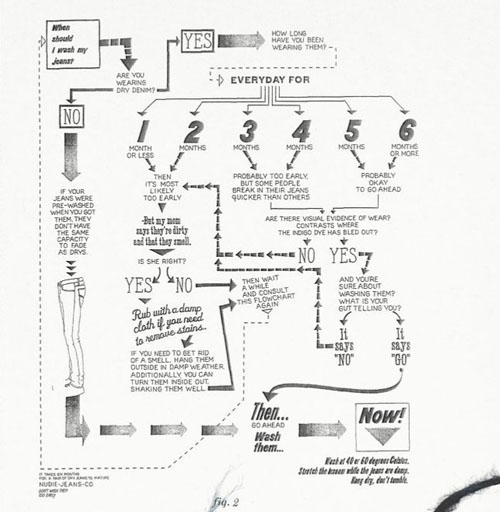 When
should
I wash my
jeans?
YES
HOW LONG
HAVE YOU BEEN
WEARING THEM?
ARE YOU
WEARING
DRY DENIM?
EVERYDAY FOR
NO
1
MONTH
OR LESS
2
MONTHS
3
MONTHS
4
MONTHS
5
MONTHS
6
MONTHS
OR MORE
THEN
IT'S MOST
LIKELY
TOO EARLY
PROBABLY TOO EARLY,
BUT SOME PEOPLE
BREAK IN THEIR JEANS
QUICKER THAN OTHERS
PROBABLY
OKAY
TO GO AHEAD
IF YOUR
JEANS WERE
PRE-WASHED
WHEN YOU GOT
THEM, THEY
DON'T HAVE
THE SAME
CAPACITY
TO FADE
AS DRYS.
-But my mom
says they're dirty
and that they smell.
ARE THERE VISUAL EVIDENCE OF WEAR?
CONTRASTS WHERE
THE INDIGO DYE HAS BLED OUT?
IS SHE RIGHT?
NO
YES
YES
NO
THEN WAIT
A WHILE
AND CONSULT
THIS FLOWCHART
AGAIN
AND YOU'RE
SURE ABOUT
WASHING THEM?
WHAT IS YOUR
GUT TELLING YOU?
Rub with a damp
cloth if you need
to remove stains..
It
says
"NO"
It
says
"GO"
IF YOU NEED TO GET RID
OF A SMELL, HANG THEM
OUTSIDE IN DAMP WEATHER.
ADDITIONALLY, YOU CAN
TURN THEM INSIDE OUT,
SHAKING THEM WELL.
Then...
GO AHEAD
Wash
them...
Now!
Wash at 40 or 60 degrees Celsius.
Stretch the inseam while the jeans are damp.
Hang dry, don't tumble.
IT TAKES SIX MONTHS
FOR A PAIR OF DRY JEANS TO MATURE
NUDIE-JEANS-CO
DON'T WASH THEM
fig. 2